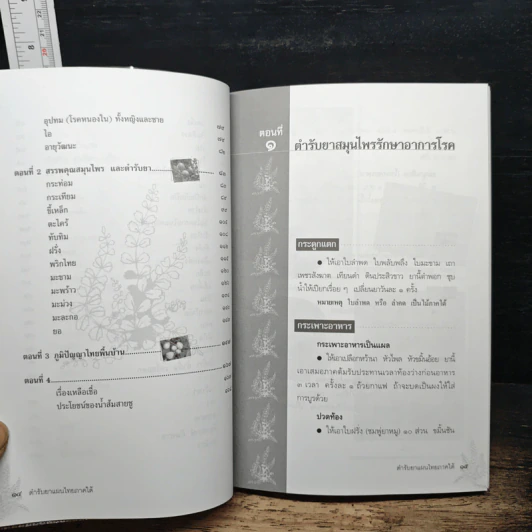 อุปทม (โรคหนองใน) ทั้งหญิงและชาย
ไอ
อายุวัฒนะ
ตอนที่ 2 สรรพคุณสมุนไพร และตำรับยา
กระท่อม
กระเทียม
ขี้เหล็ก
ตะไคร้
ทับทิม
ฝรั่ง
พริกไทย
มะขาม
มะพร้าว
มะม่วง
มะละกอ
ยอ
ตอนที่ 3 ภูมิปัญญาไทยพื้นบ้าน
ตอนที่ 4
เรื่องเหลือเชื่อ
ประโยชน์ของน้ำส้มสายชู
ตำรับยาแผนไทยภาคใต้
ตอนที่
๑
ตำรับยาสมุนไพรรักษาอาการโรค
กระดูกแตก
● ให้เอาใบลำพด ใบพลับพลึง ใบมะขาม เถา
เพชรสังฆาต เทียนดำ ดินประสิวขาว ยานี้ตำพอก ชุบ
น้ำให้เปียกเรื่อย ๆ เปลี่ยนยาวันละ ๑ ครั้ง
หมายเหตุ ใบลำพด หรือ ลำพด เป็นไม้ภาคใต้
กระเพาะอาหาร
กระเพาะอาหารเป็นแผล
● ให้เอาเปลือกหว้านา หัวไพล หัวขมิ้นอ้อย ยานี้
เอาเสมอภาคต้มรับประทานเวลาท้องว่างก่อนอาหาร
๓ เวลา ครั้งละ ๑ ถ้วยกาแฟ ถ้าจะบดเป็นผงให้ใส่
การบูรด้วย
ปวดท้อง
● ให้เอาใบฝรั่ง (ชมพู่ยาหมู) ๑๐ ส่วน ขมิ้นชัน
ตำรับยาแผนไทยภาคใต้ ๑๕